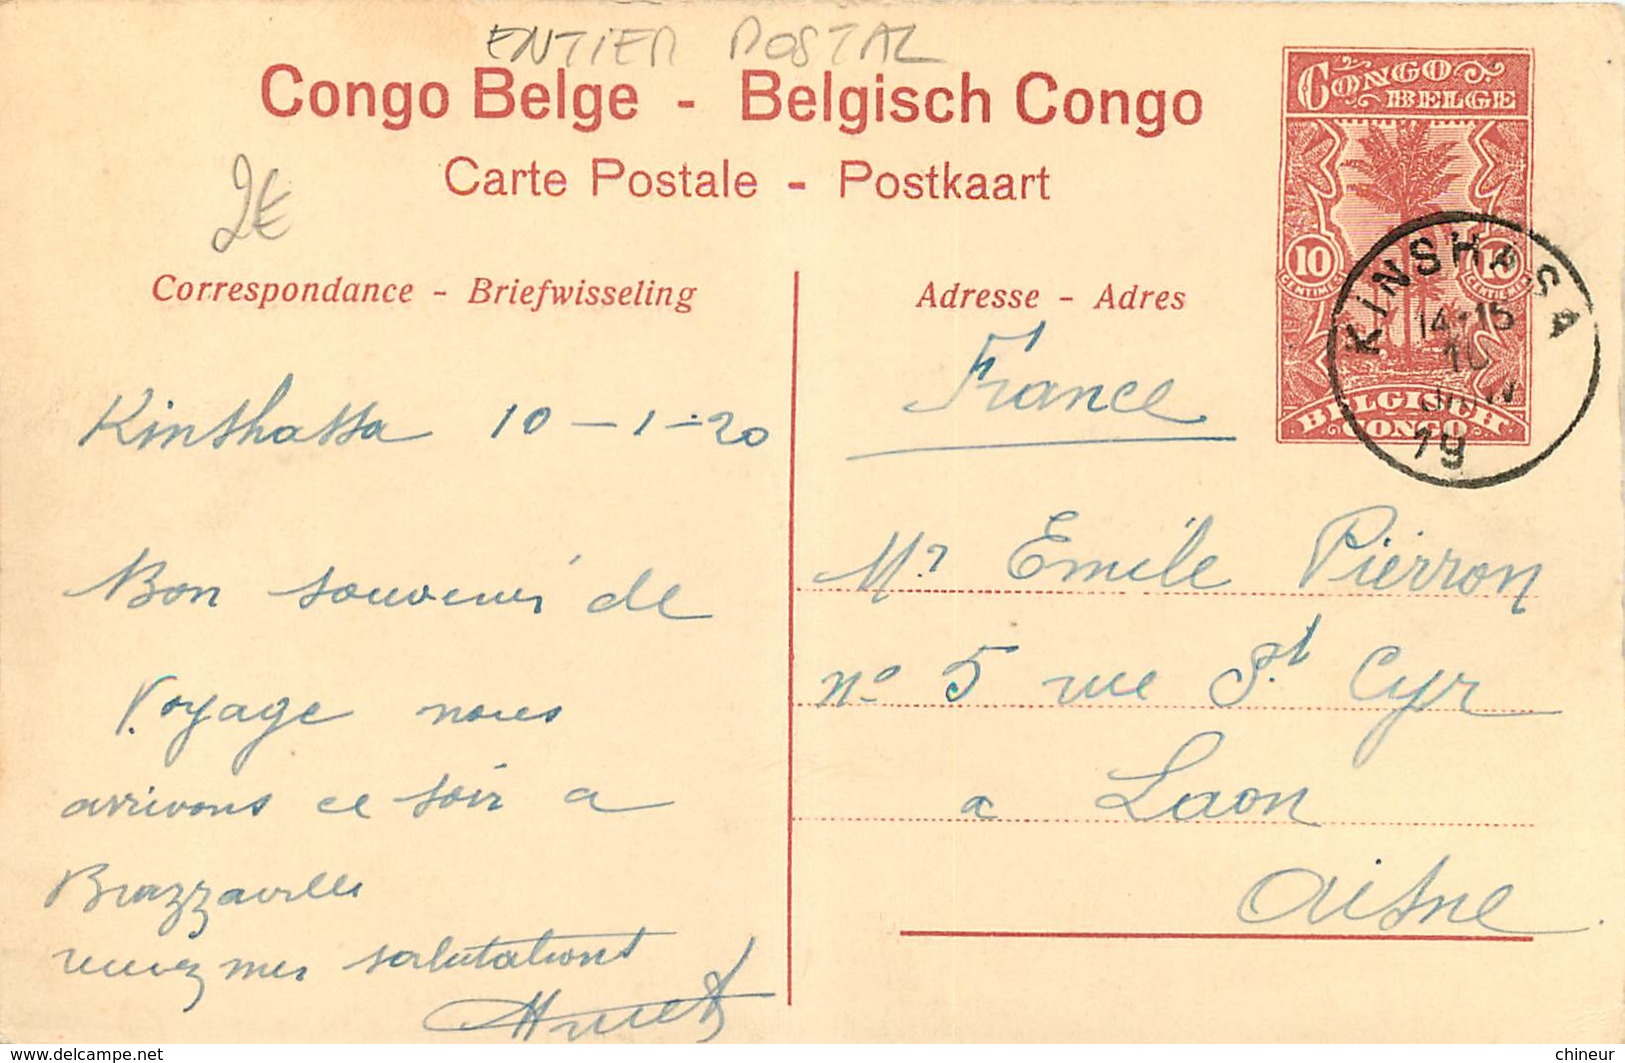 ENTIER POSTAL
Congo Belge - Belgisch Congo
Carte Postale - Postkaart
2€
CONGO BELGE
10 CENTIMES
10 CENTIMES
BELGISCH CONGO
KINSHASA
14-15
10
19
Correspondance - Briefwisseling
Kinshassa 10-1-20
Bon souvenir de
Voyage nous
arrivons ce soir a
Brazzaville
recevez mes salutations
Adresse - Adres
France
Mr Emile Piérron
no 5 rue St Cyr
a Laon
Aisne
www.delcampe.net
chineur